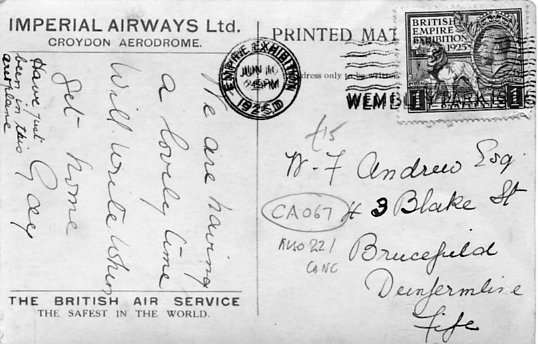 IMPERIAL AIRWAYS Ltd.
CROYDON AERODROME.
We are having
a lovely time
Will write when
get home
Gay
Have just
been in this
aeroplane
THE BRITISH AIR SERVICE
THE SAFEST IN THE WORLD.
PRINTED MAT
dress only to be written
EMPIRE EXHIBITION
JUN
PM
1925
WEMBLEY PARK
BRITISH
EMPIRE
EXHIBITION
1925
1 1
£15
W-F Andrew Esq.
CA067
3 Blake St
Brucefield
Dunfermline
Fife